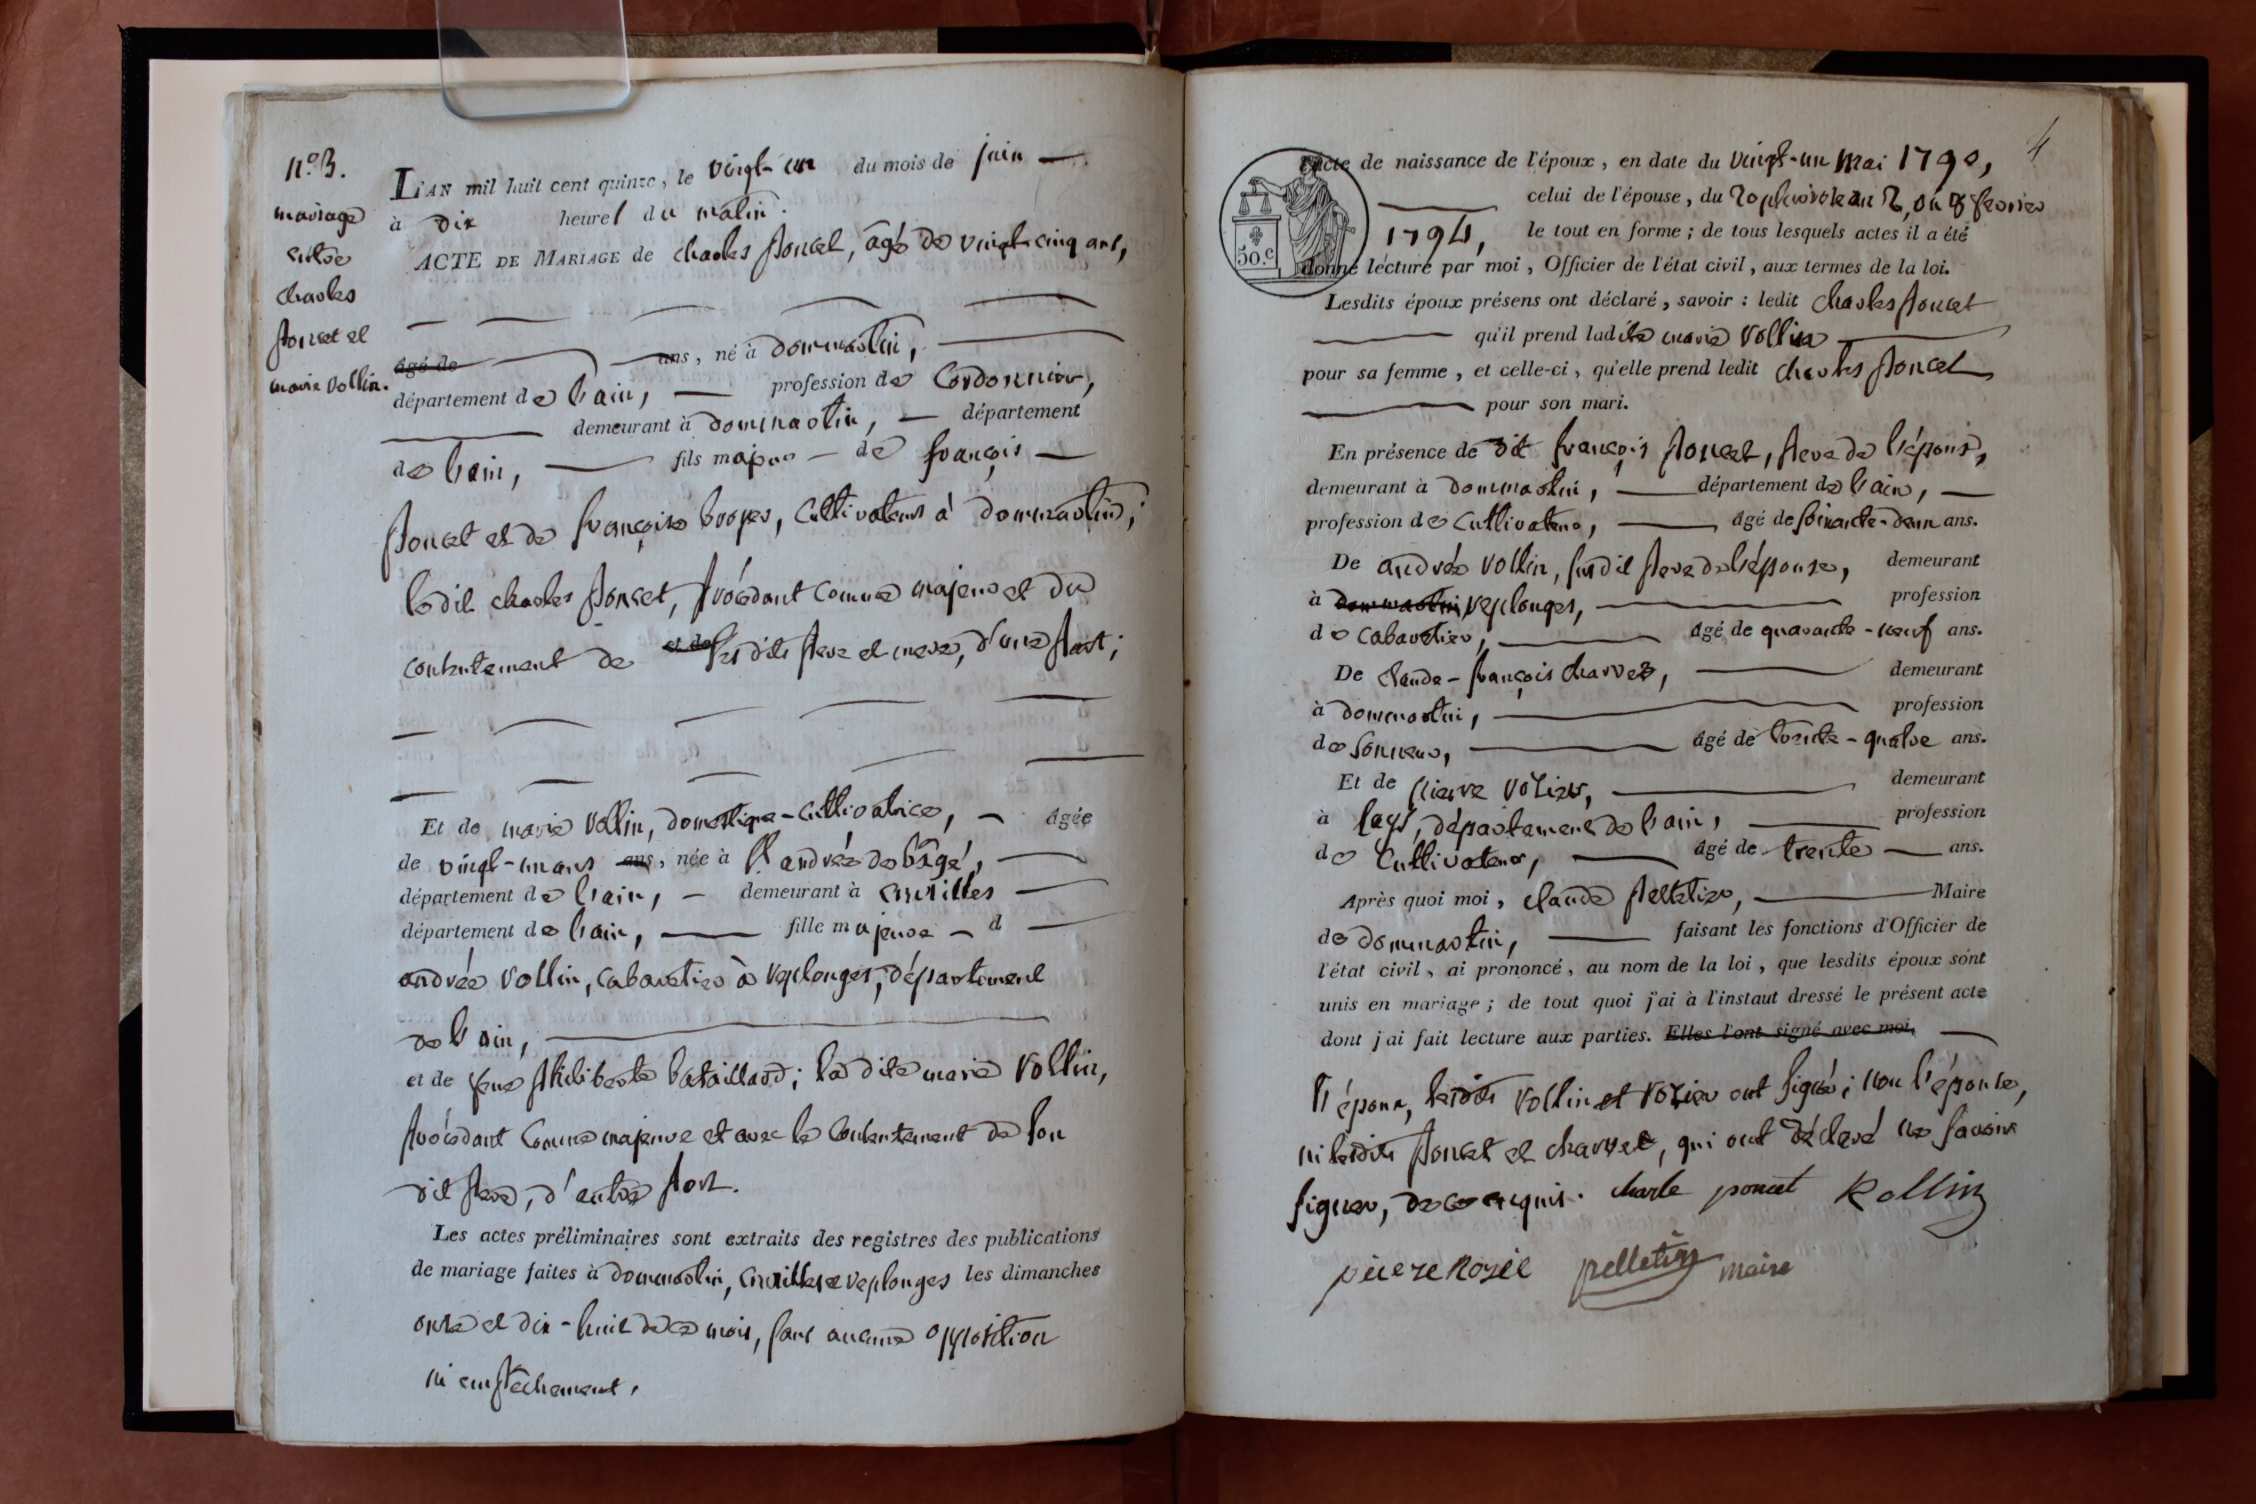 n.º 3.
mariage
entre
charles
poncet et
marie vollin.
L'AN mil huit cent quinze, le vingt-un du mois de juin
à dix heures du matin.
ACTE DE MARIAGE de charles poncet, âgé de vingt-cinq ans,
âgé de ans, né à dommartin,
département de l'ain, profession de Cordonnier,
demeurant à dommartin, département
de l'ain, fils majeur de françois
poncet et de françoise broyer, Cultivateurs à dommartin;
ledit charles poncet, procédant comme majeur et du
consentement de et de ses dits père et mère, d'une part;
Et de marie vollin, domestique-cultivatrice, âgée
de vingt-un ans ans, née à St. andré de bâgé,
département de l'ain, demeurant à cruzilles
département de l'ain, fille majeure d
andré vollin, cabaretier à replonges, département
de l'ain,
et de feue philiberte bataillard; la dite marie vollin,
procédant comme majeure et avec le consentement de son
dit père, d'autre part.
Les actes préliminaires sont extraits des registres des publications
de mariage faites à dommartin, cruzilles et replonges les dimanches
onze et dix-huit de ce mois, sans aucune opposition
ni empêchement,
4
50.c
l'acte de naissance de l'époux, en date du vingt-un mai 1790,
celui de l'épouse, du 20 pluviôse an 2, ou 8 février
1794, le tout en forme; de tous lesquels actes il a été
donné lecture par moi, Officier de l'état civil, aux termes de la loi.
Lesdits époux présens ont déclaré, savoir: ledit charles poncet
qu'il prend ladite marie vollin
pour sa femme, et celle-ci, qu'elle prend ledit charles poncet
pour son mari.
En présence de dit françois poncet, père de l'époux,
demeurant à dommartin, département de l'ain,
profession de cultivateur, âgé de soixante-deux ans.
De andré vollin, susdit père de l'épouse, demeurant
à dommartin, replonges, profession
de cabaretier, âgé de quarante-neuf ans.
De claude-françois charvet, demeurant
à dommartin, profession
de sonneur, âgé de trente-quatre ans.
Et de pierre rozier, demeurant
à lays, département de l'ain, profession
de Cultivateur, âgé de trente ans.
Après quoi moi, claude pelletier, Maire
de dommartin, faisant les fonctions d'Officier de
l'état civil, ai prononcé, au nom de la loi, que lesdits époux sont
unis en mariage; de tout quoi j'ai à l'instant dressé le présent acte
dont j'ai fait lecture aux parties. Elles l'ont signé avec moi,
l'époux, lesdits vollin et rozier ont signé; non l'épouse,
ni lesdits poncet et charvet, qui ont déclaré ne savoir
signer, de ce enquis. charle poncet Rollin
pierre Rozié pelletier maire